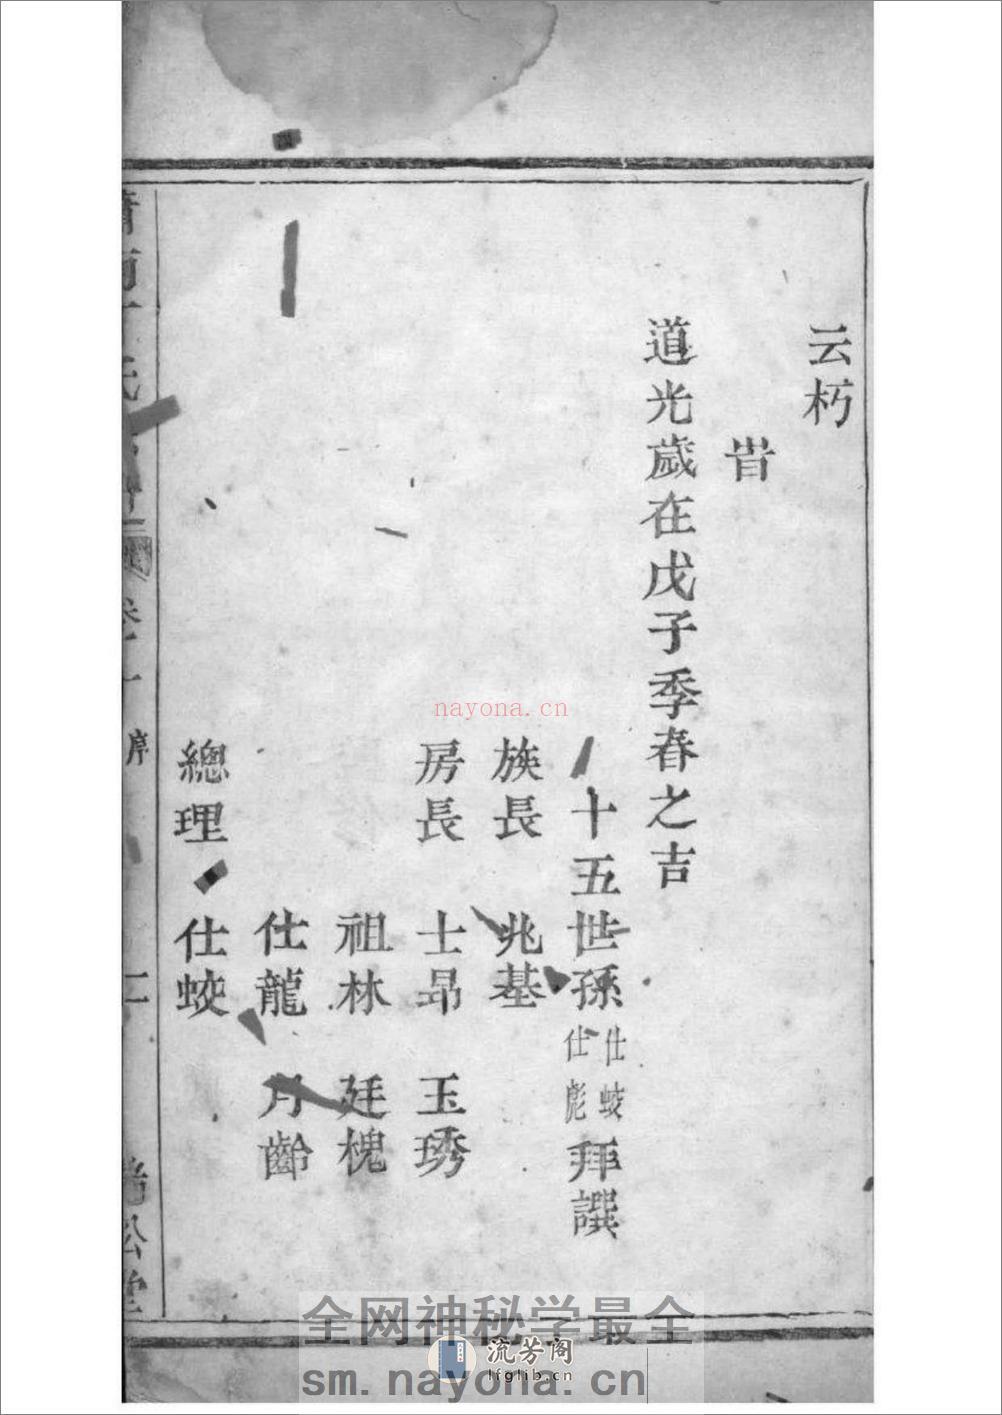 云朽
旹
道光歲在戊子季春之吉
十五世孫仕蛟仕彪拜譔
族長 兆基
房長 士昻 玉琇
祖林 廷槐
仕龍 丹齡
總理 仕蛟
氏
卷
序
二
公堂
nayona.cn
全网神秘学最全
流芳阁
lfglib.cn
sm.nayona.cn